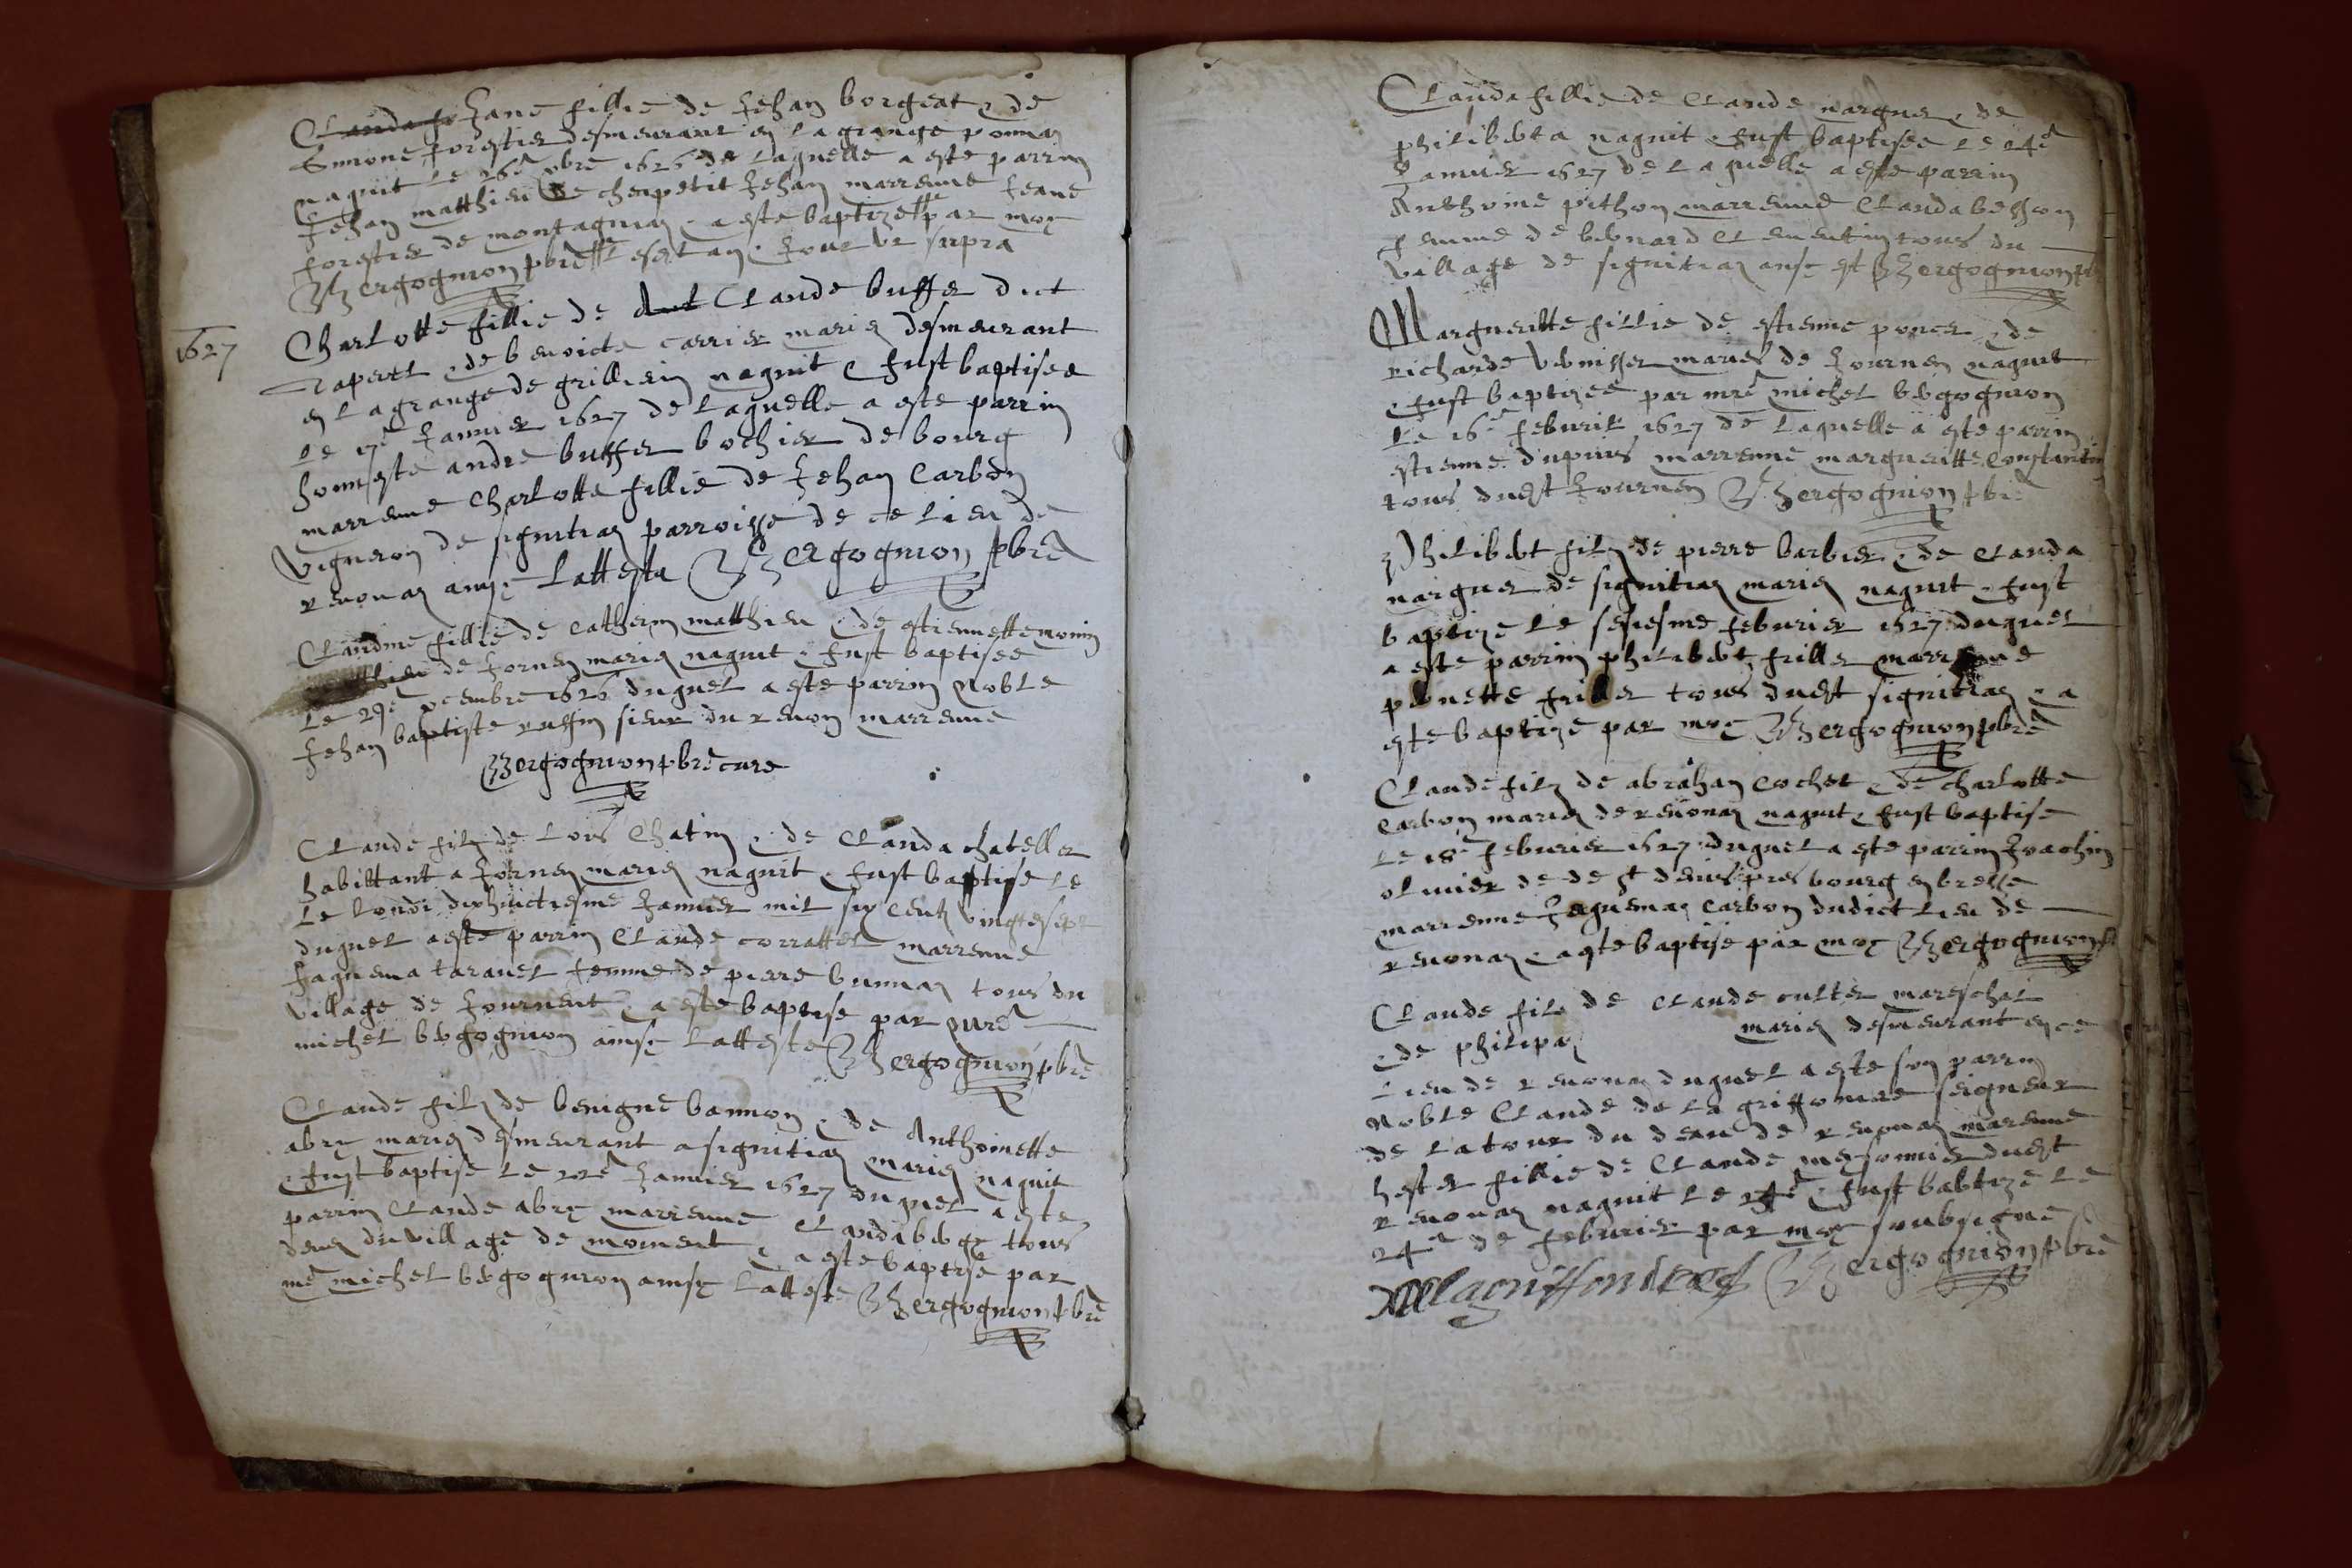 Clauda fi Jane fillie de Jehan borgeat & de
Simone forestier desmeurant en la grange ponnaz
naquit le 26e xbre 1626 de laquelle a este parrin
Jehan matthieu de chenpetit Jehan marrenne Jeane
forestier de montagniaz & a este baptize par moy
Bergognion pbre lesd an & jour ut supra
1627
Charlotte fillie de dud Claude buffer dict
rapertt & de benoicte carrier mariez desmeurant
en la grange de grillerin naquit & fust baptisee
le 17e Janvier 1627 de laquelle a este parrin
honneste andre buffer bochier de bourg
marrenne charlotte fillie de Jehan Carbon
vigneron de signitiaz parroisse de ce lieu de
revonaz ainsy l'atteste Bergognion pbre
Claudine fillie de Catherin matthieu & de estiennette monin
de Jornen mariez naquit & fust baptisee
le 29e xcembre 1626 duquel a este parrin noble
Jehan baptiste ruffin sieur du revon marrenne
Bergognion pbre cure
Claude filz de Lois Chatin & de Clauda chateller
habittant a Jornen mariez naquit & fust baptise le
le londi dixhuictiesme Janvier mil six centz vingtesept
duquel a este parrin Claude corrattel marrenne
Jaquema taravel femme de pierre bunnaz tous du
village de Journent & a este baptise par mre
michel bergognion ainsy l'atteste Bergognion pbre
Claude filz de benigne bannon & de Anthoinette
abry mariez desmeurant a signitiaz mariez naquit
& fust baptise le 22e Janvier 1627 duquel a este
parrin Claude abry marrenne Clauda berge tous
deux du village de moment & a este baptise par
mre michel bergognion ainsy l'atteste Bergognion pbre
Clauda fillie de Claude narguer & de
philiberta naquit & fust baptisee le 24e
Janvier 1627 de laquelle a este parrin
Anthoine pithon marrenne Clauda besson
femme de bernard Clementin tous du
village de signitiaz ainsy est Bergognion pbre
Margueritte fillie de estienne poncer & de
richarde vernisser mariez de Journen naquit
& fust baptizee par mre michel bergognion
le 16e feburier 1627 de laquelle a este parrin
estienne dupuis marrenne margueritte Constantin
tous dudt Journen Bergognion pbre
Philibert filz de pierre barbier & de Clauda
narguer de signitiaz mariez naquit & fust
baptize le sesiesme feburier 1627 duquel
a este parrin philibert friller marrenne
pernette friller tous dudt signitiaz & a
este baptize par moy Bergognion pbre
Claude filz de abrahan Cochet & de charlotte
Carbon mariez de revonaz naquit & fust baptise
le 18e feburier 1627 duquel a este parrin Joachin
olivier de de st denis pres bourg en bresse
marrenne Jaquemaz Carbon dudict lieu de
revonaz & a este baptise par moy Bergognion pbre
Claude filz de Claude culter mareschal
& de philipaz mariez desmeurant en ce
lieu de revonaz duquel a este son parrin
noble Claude de la griffoniere seigneur
de la tour du deau de revonaz marenne
hester fillie de Claude messonnier dudt
revonaz naquit le & fust babtize le
24e de feburier par moy soubsigne
Bergognion pbre